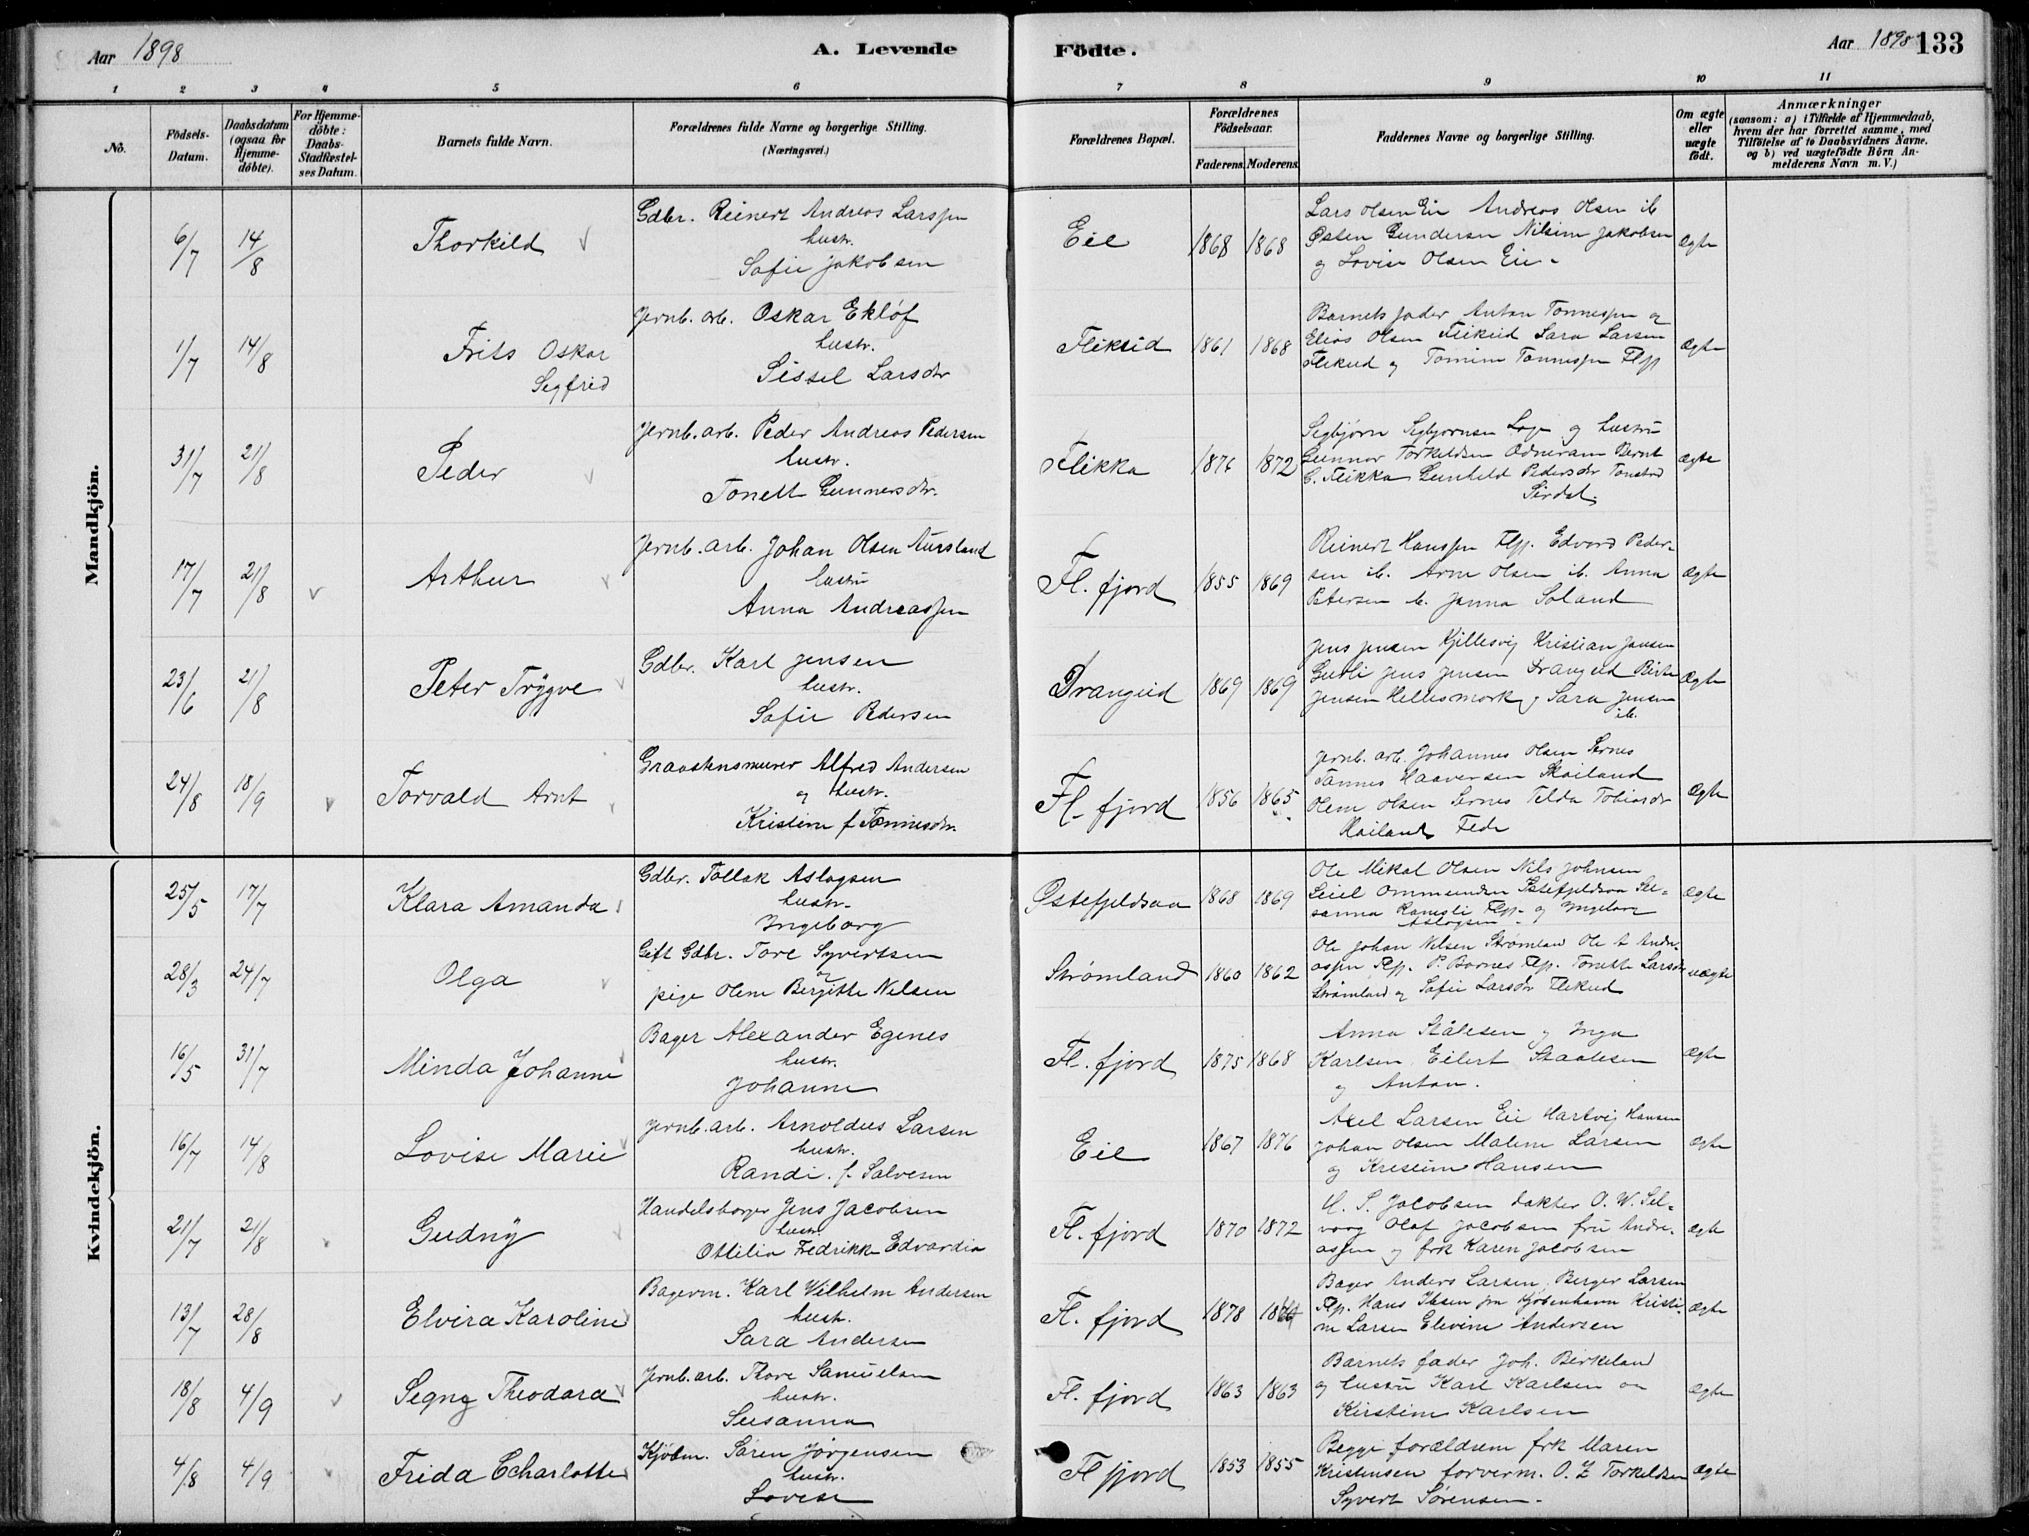 Aar 1898
A. Levende
Födte.
Aar 1898
133
1 2 3 4 5 6 7 8 9 10 11
No.
Födsels-
Datum.
Daabsdatum
(ogsaa for
Hjemme-
döbte).
For Hjemme-
döbte:
Daabs-
Stadfæstel-
ses Datum.
Barnets fulde Navn.
Forældrenes fulde Navne og borgerlige Stilling.
(Næringsvei.)
Forældrenes Bopæl.
Forældrenes
Födselsaar.
Faderens. Moderens.
Faddernes Navne og borgerlige Stilling.
Om ægte
eller
uægte
födt.
Anmærkninger
(saasom: a) i Tilfælde af Hjemmedaab,
hvem der har forrettet samme, med
Tilföielse af to Daabsvidners Navne.
og b) ved uægtefödte Börn An-
melderens Navn m. V.)
Mandkjön.
6/7 14/8 Thorkild
Gdbr. Reinert Andreas Larssen
hustr.
Sofie Jakobsen
Eie 1868 1868
Lars Olsen Eie Andreas Olsen ib
Østen Gundersen Nilsine Jakobsen
og Lovise Olsen Eie.
Ægte
1/7 14/8 Frits Oskar
Segfred
Jernb. arb. Oskar Ekløf
hustr.
Sissel Larsdr
Fliksid 1861 1868
Barnets fader Anton Tønnessen og
Elias Olsen Flikeid Sara Larsen
Flikeid og Tomine Tønnessen Flfj
Ægte
31/7 21/8 Peder
Jernb. arb. Peder Andreas Pedersen
hustr.
Tonett Gunnarsdr.
Flikka 1876 1872
Segbjørn Segbjørnsen Loge og hustru
Gunnar Torkeldsen Ødneram Bernt
Flikka Gunhild Pedersdr Tonstad
Sirdal.
Ægte
17/7 21/8 Arthur
Jernb. arb. Johan Olsen Aursland
hustru
Anna Andreassen
Fl. fjord 1855 1869
Reinert Hanssen Flfj. Edvard Peder-
sen ib. Arne Olsen ib. Anna
Petersen ib. Janna Soland
Ægte
23/6 21/8 Peter Trygve
Gdbr. Karl Jensen
hustr.
Sofie Pedersen
Drangeid 1869 1869
Jens Jensen Kjellesvig Kristian Jansen
Gusli Jens Jensen Drangeid Birte
Jensen Hellesmork og Sara Jensen
ib.
Ægte
24/8 18/9 Torvald Arnt
Graastensmurer Alfred Andersen
og hustr.
Kristine f. Tønnesdr.
Fl. fjord 1856 1865
Jernb. arb. Johannes Olsen Sernes
Tønnes Haaversen Skailand
Olene Olsen Sernes Telda Tobiasdr
Hailand Fede
Ægte
Kvindekjön.
25/5 17/7 Klara Amanda
Gdbr. Tollak Aslagsen
hustr.
Ingeborg
Østefjeldsaa 1868 1869
Ole Mikal Olsen Nils Johnsen
Leiel Ommundsen Østefjeldsaa Su-
sanna Ramsli Flfj. og Ingeborg
Aslagsen
Ægte
28/3 24/7 Olga
Gift Gdbr. Tore Syvertsen
og
pige Olene Bergitte Nilsen
Strømland 1860 1862
Ole Johan Nilsen Strømland Ole A Andre-
assen Flfj. P. Barnes Flfj. Tonette Larsdr
Strømland og Sofie Larsdr Flikeid
uægte
16/5 31/7 Minda Johanne
Bager Alexander Egenes
hustr.
Johanne
Fl. fjord 1875 1868
Anna Stålesen og Inga
Karlsen Eilert Staalesen
og Anton.
Ægte
16/7 14/8 Lovise Marie
Jernb. arb. Arnoldus Larsen
hustr.
Randi f. Salvesen
Eie 1867 1876
Axel Larsen Eie Hartvig Hansen
Johan Olsen Malene Larsen
og Kristine Hansen
Ægte
21/7 21/8 Gudny
Handelsborger Jens Jacobsen
hustr.
Ottilia Fredrikke Edvardia
Fl. fjord 1870 1872
H. S. Jacobsen dokter O. W. Sel-
vaag Olaf Jacobsen fru Andre-
assen og frk Karen Jacobsen
Ægte
13/7 28/8 Elvira Karoline
Bagerm. Karl Vilhelm Andersen
hustr.
Sara Andersen
Fl. fjord 1878
Bager Anders Larsen. Berger Larsen
Flfj. Hans Ibsen fra Kjøbenhavn Kristi-
ne Larsen Elevine Andersen
Ægte
18/8 4/9 Segny Theodora
Jernb. arb. Thore Samuelsen
hustr.
Susanna
Fl. fjord 1863 1863
Barnets fader Joh. Birkeland
og hustru Karl Karlsen og
Kirstine Karlsen
Ægte
4/8 4/9 Frida Charlotte
Kjøbm. Søren Jørgensen
hustr.
Lovise
Fl fjord 1853 1855
Begge forældrene frk Maren
Kristensen forverm. O. Z Torkeldsen
Syvert Sørensen.
Ægte